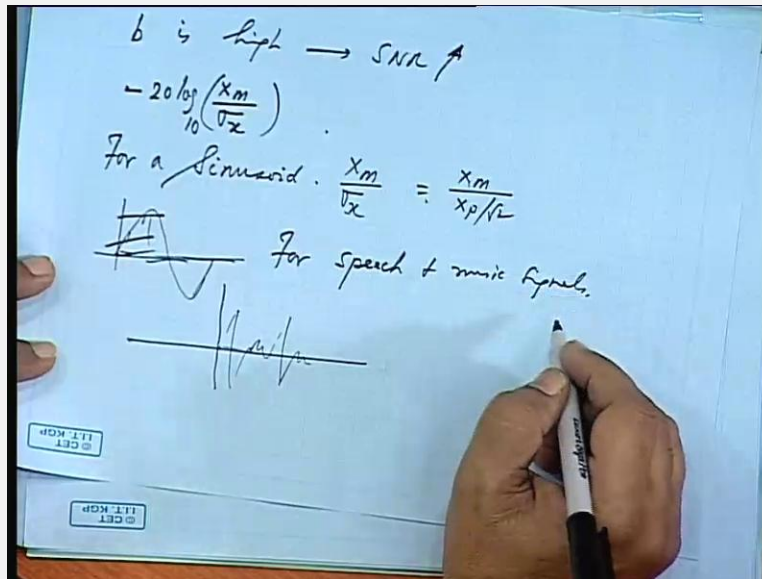 b is high → SNR ↑
- 20 log₁₀ (Xm / σx) .
For a Sinusoid. Xm / σx = Xm / (Xp/√2)
For speech & music signals.
© CET
I.I.T. KGP
© CET
I.I.T. KGP